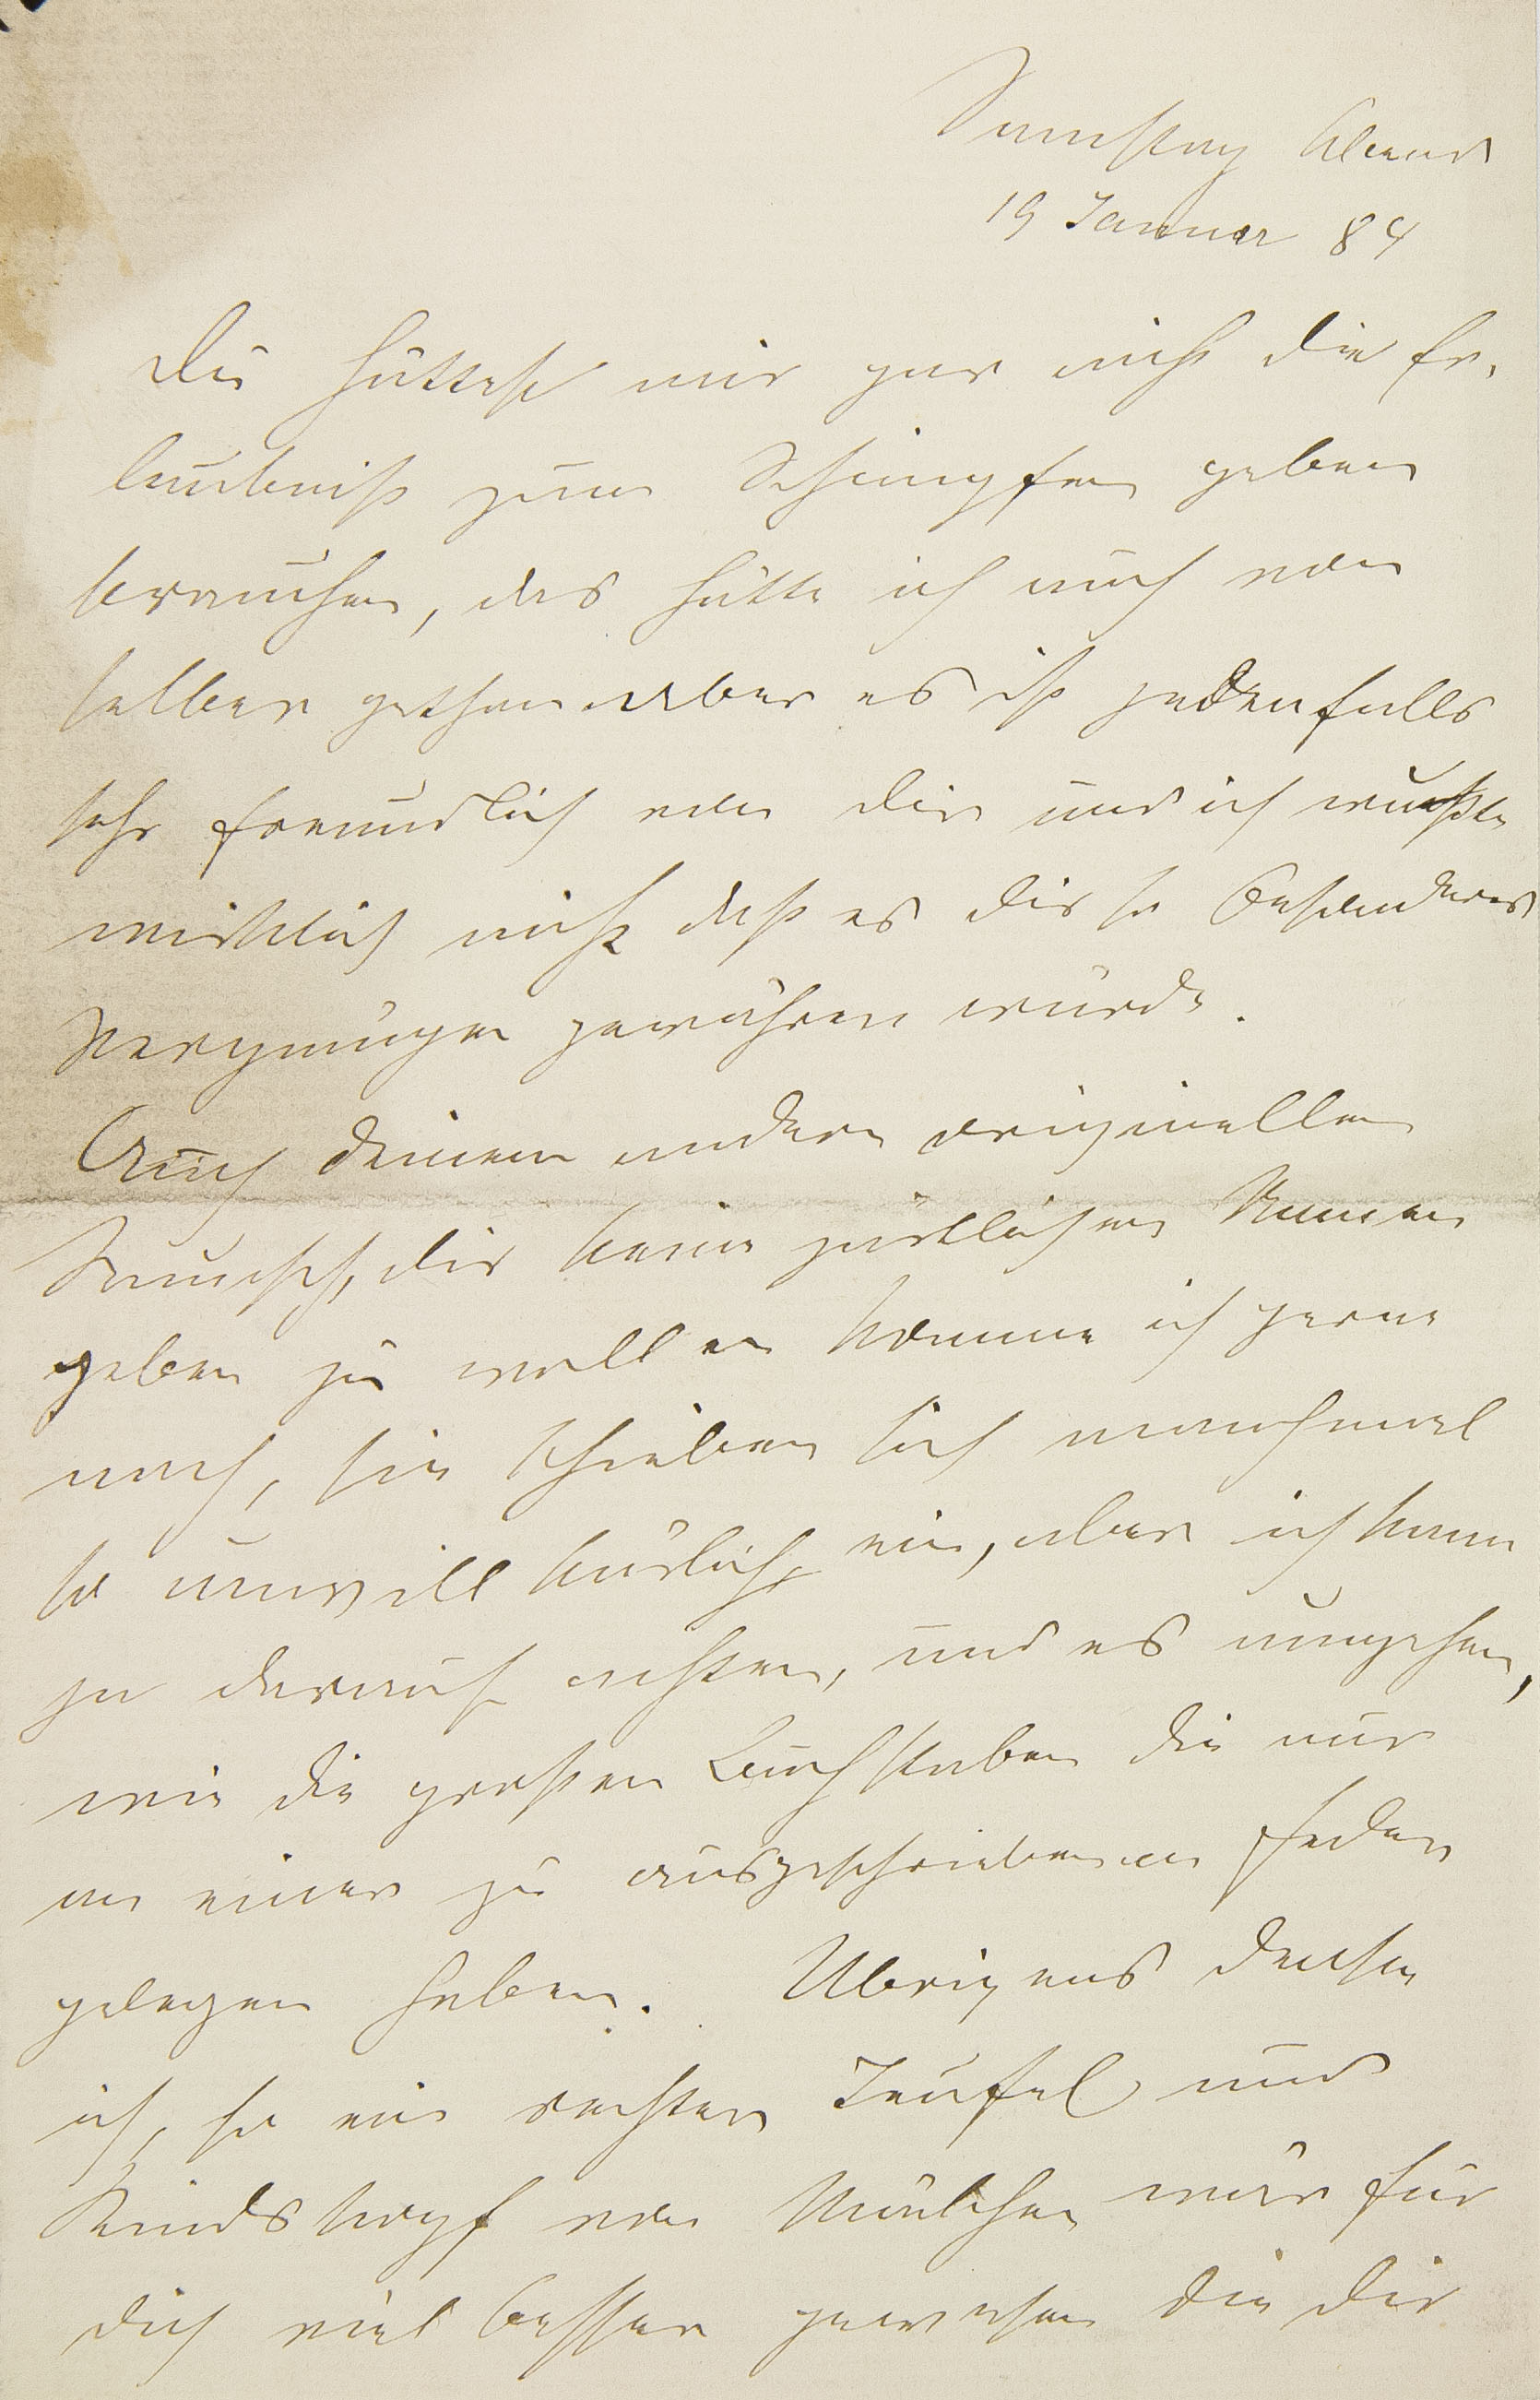 Samstag Abend
19 Januar 84
Du hättest mir gar nicht die Er-
laubniß zum Schimpfen geben
brauchen, das hätte ich auch von
selber gethan aber es ist jedenfalls
sehr freundlich von Dir und ich wußte
wirklich nicht daß es Dir so besonderes
Vergnügen gewähren würde.
Auch Deinem andern originellen
Wunsch, Dir keine zärtlichen Namen
geben zu wollen komme ich gerne
nach, sie schieben sich manchmal
so unwillkürlich ein, aber ich kann
ja darauf achten, und es umgehen,
wie die großen Buchstaben die nur
an einer zu ausgeschriebenen Feder
gelegen haben. Übrigens denke
ich, so ein rechter Teufel und
Kindskopf von Mädchen wär für
Dich viel besser gewesen die Dir